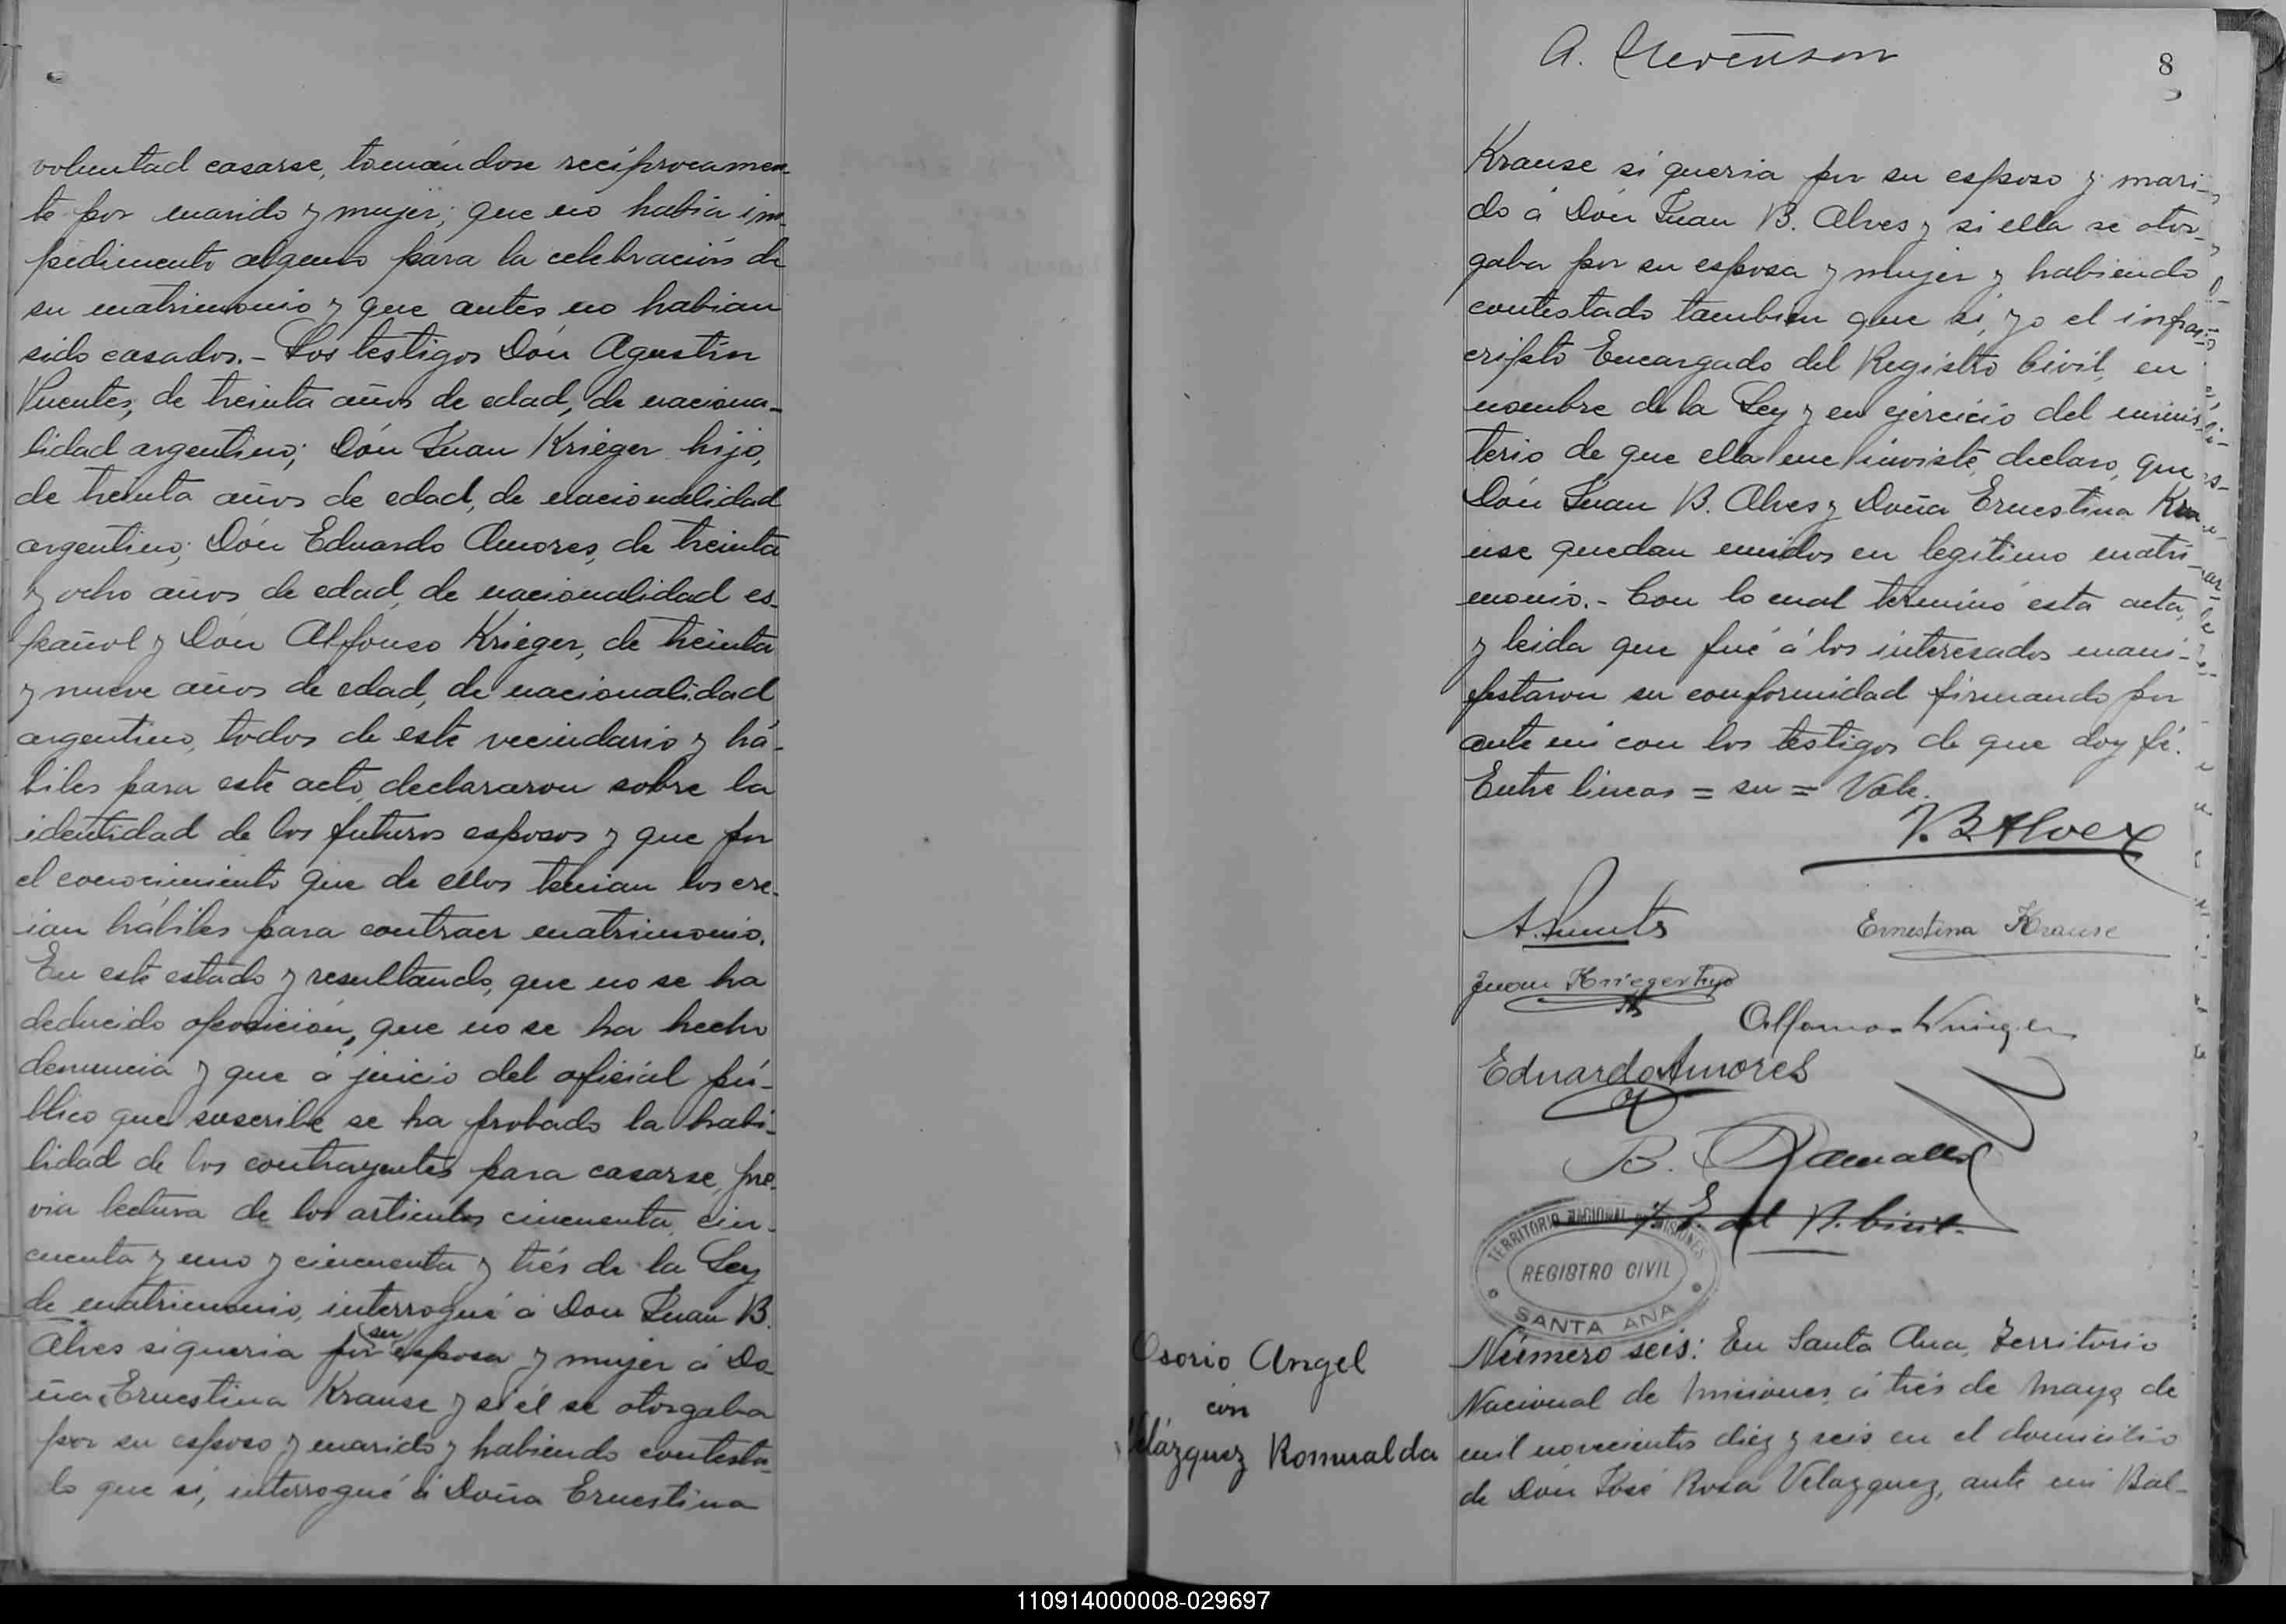 voluntad casarse, tomándose recíprocamen-
te por marido y mujer; que no habia im-
pedimento alguno para la celebración de
su matrimonio y que antes no habian
sido casados.- Los testigos Dón Agustín
Puentes, de treinta años de edad, de naciona-
lidad argentino; Dón Juan Krieger hijo,
de treinta años de edad, de nacionalidad
argentino; Dón Eduardo Amores, de treinta
y ocho años de edad, de nacionalidad es-
pañol y Dón Alfonso Krieger, de treinta
y nueve años de edad, de nacionalidad
argentino, todos de este vecindario y há-
biles para este acto, declararon sobre la
identidad de los futuros esposos y que por
el conocimiento que de ellos tenian los cre-
ian hábiles para contraer matrimonio.
En este estado y resultando, que no se ha
deducido oposición, que no se ha hecho
denuncia y que á juicio del oficial pú-
blico que suscribe se ha probado la habi-
lidad de los contrayentes para casarse, pre-
via lectura de los articulos cincuenta, cin-
cuenta y uno y cincuenta y trés de la Ley
de matrimonio, interrogué á Don Juan B.
Alves si queria por su esposa y mujer á Do-
ña Ernestina Krause y si él se otorgaba
por su esposo y marido y habiendo contesta-
do que si, interrogué á Doña Ernestina
A. Stevenson
8
Krause si queria por su esposo y mari-
do á Dón Juan B. Alves y si ella se otor-
gaba por su esposa y mujer y habiendo
contestado tambien que si, yo el infras-
cripto Encargado del Registro Civil, en
nombre de la Ley y en ejercicio del minis-
terio de que ella me inviste, declaro, que
Dón Juan B. Alves y Doña Ernestina Kra-
use quedan unidos en legitimo matri-
monio.- Con lo cual terminó esta acta,
y leida que fué á los interesados mani-
festaron su conformidad firmando por
ante mi con los testigos de que doy fé.
Entre lineas = su = Vale.
J.B. Alves
A. Puentes
Ernestina Krause
Juan Krieger hijo
Alfonso Krieger
Eduardo Amores
B.
E. del R. Civil.
TERRITORIO NACIONAL DE MISIONES
REGISTRO CIVIL
SANTA ANA
Osorio Angel
con
Velázquez Romualda
Número seis: En Santa Ana, Territorio
Nacional de Misiones, á trés de Mayo de
mil novecientos diez y seis en el domicilio
de Dón José Rosa Velazquez, ante mi Bal-
110914000008-029697